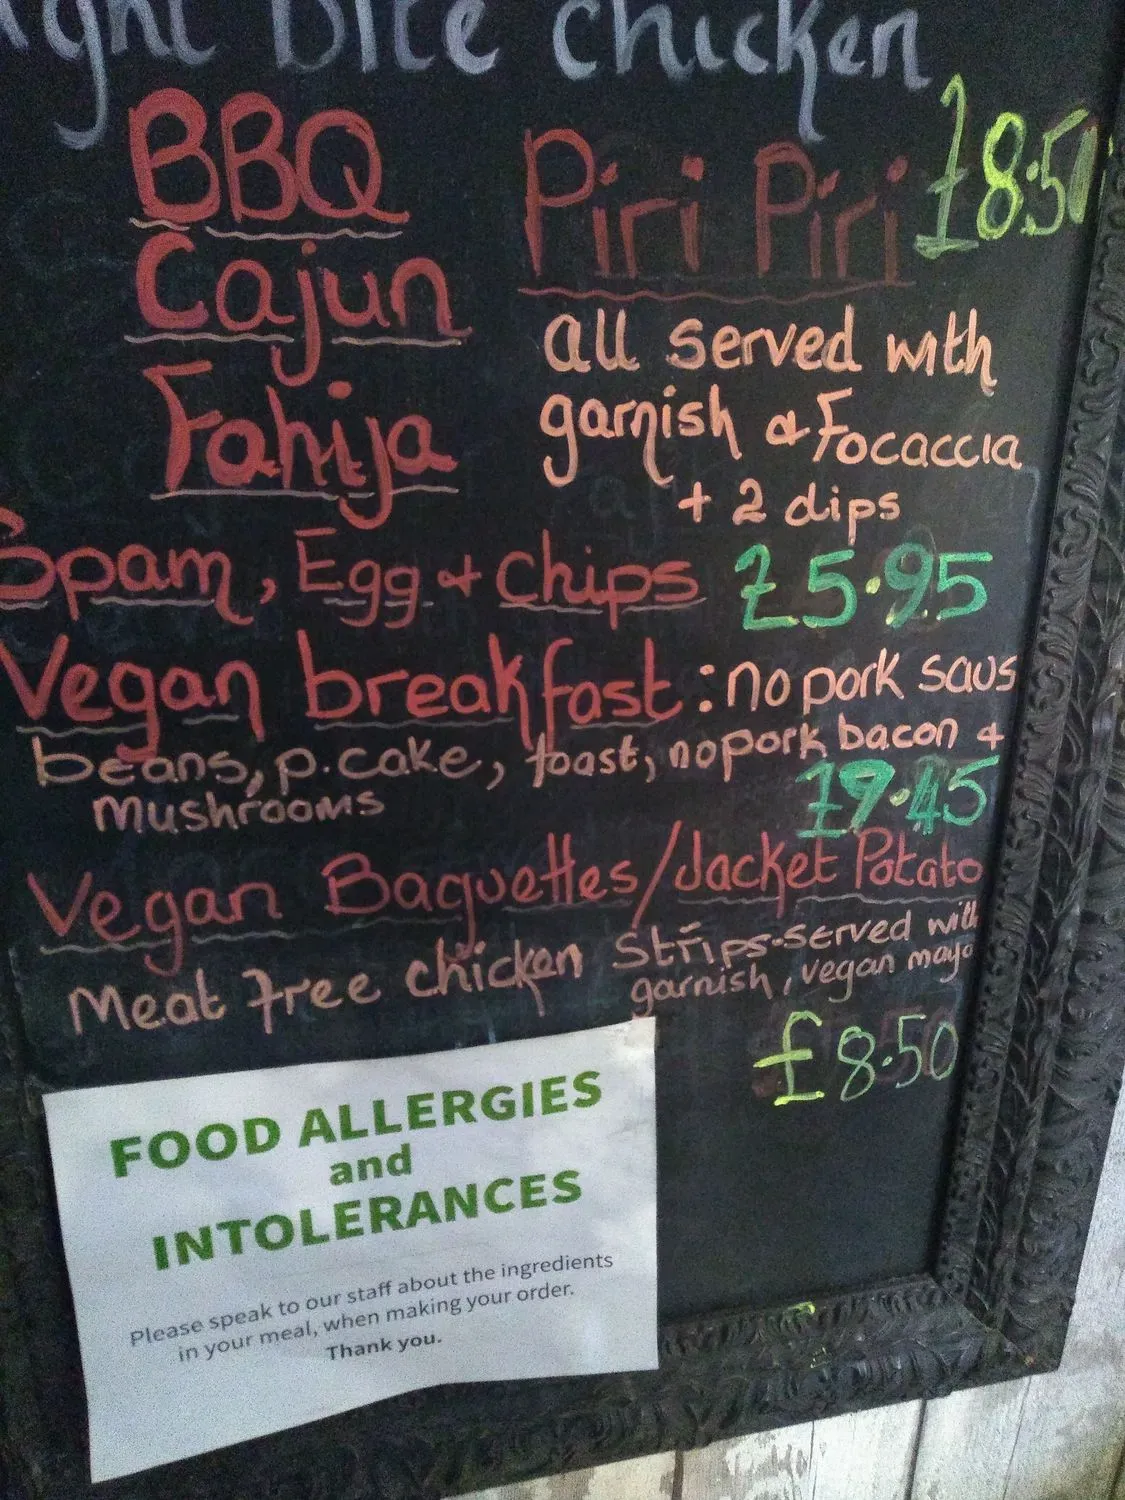 Bite chicken
BBQ
Piri Piri £8.50
Cajun
all served with
Fahija
garnish & Focaccia
+ 2 dips
Spam, Egg + chips £5.95
Vegan breakfast: no pork saus
beans, p.cake, toast, no pork bacon +
mushrooms
£9.45
Vegan Baguettes/Jacket Potato
Meat free chicken strips-served with
garnish, vegan mayo
£8.50
FOOD ALLERGIES
and
INTOLERANCES
Please speak to our staff about the ingredients
in your meal, when making your order.
Thank you.